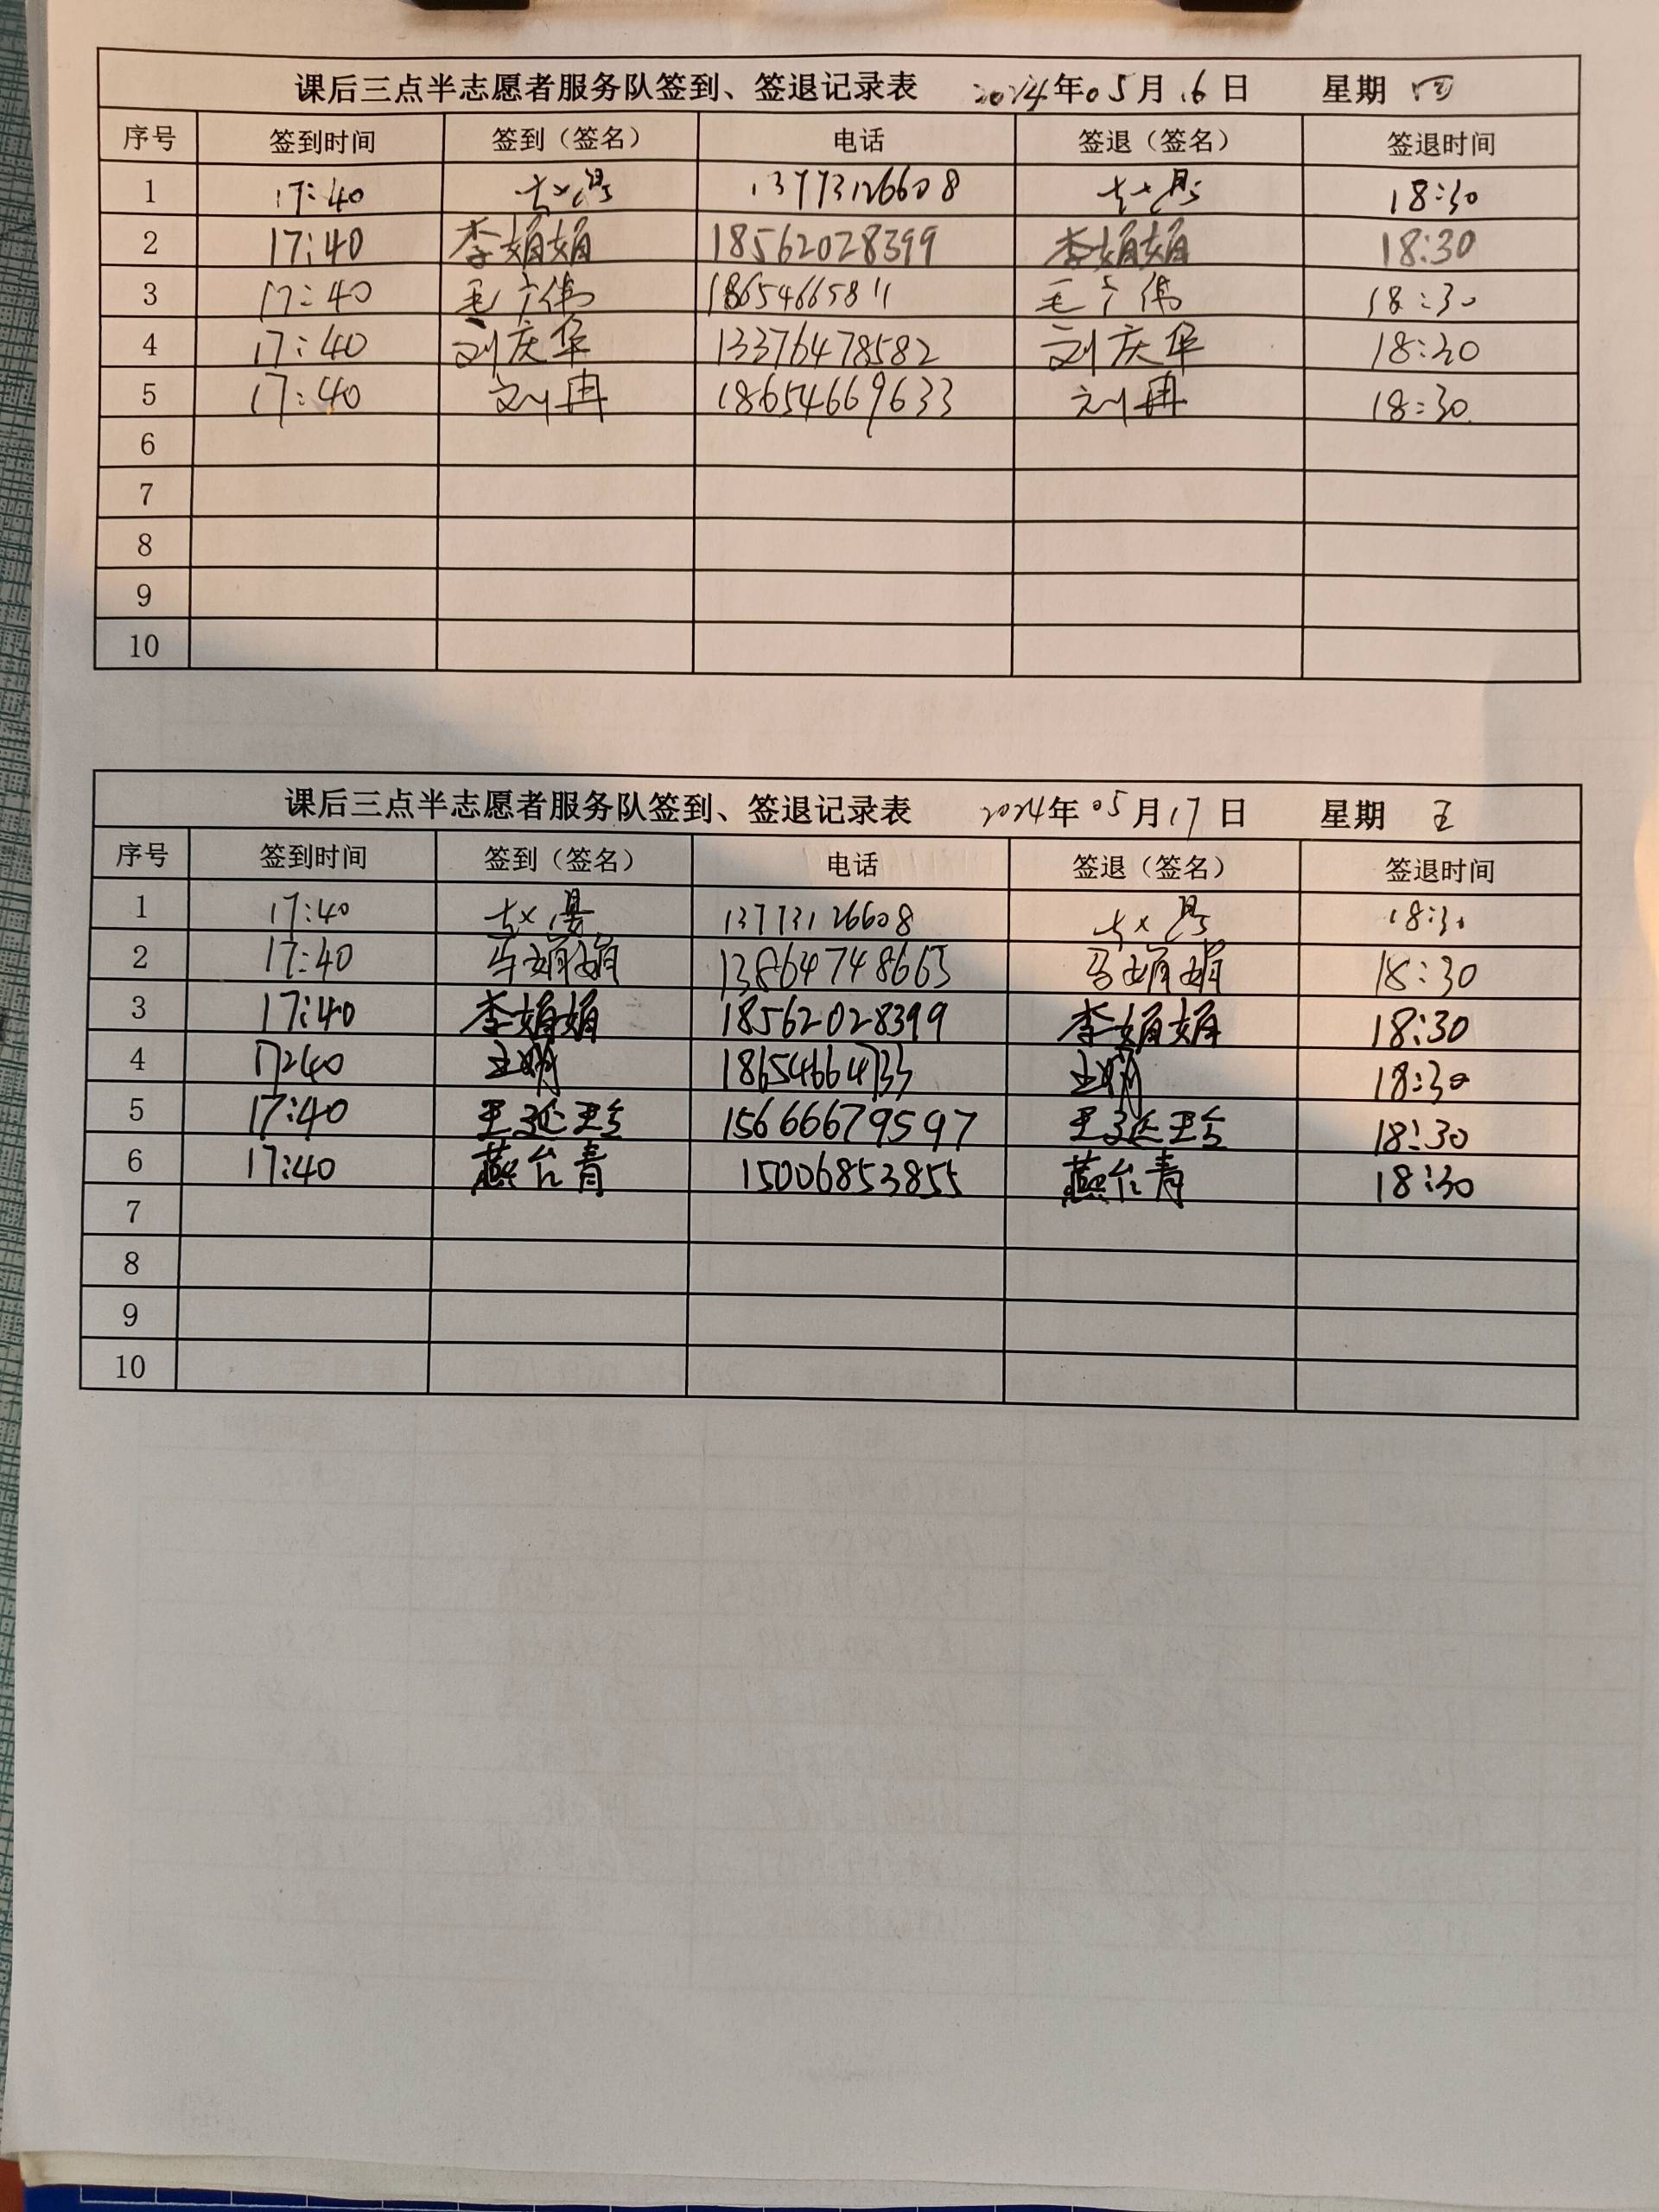 课后三点半志愿者服务队签到、签退记录表 2024年05月16日 星期 四
序号 签到时间 签到（签名） 电话 签退（签名） 签退时间
1 17:40 13773126608 18:30
2 17:40 李娟娟 18562028399 李娟娟 18:30
3 17:40 毛广伟 18654665811 毛广伟 18:30
4 17:40 刘庆华 13376478582 刘庆华 18:30
5 17:40 刘冉 18654669633 刘冉 18:30
6
7
8
9
10
课后三点半志愿者服务队签到、签退记录表 2024年05月17日 星期 五
序号 签到时间 签到（签名） 电话 签退（签名） 签退时间
1 17:40 13773126608 18:30
2 17:40 马娟娟 13864748663 马娟娟 18:30
3 17:40 李娟娟 18562028399 李娟娟 18:30
4 17:40 18654664733 18:30
5 17:40 王延玲 15666679597 王延玲 18:30
6 17:40 燕台青 15006853855 燕台青 18:30
7
8
9
10